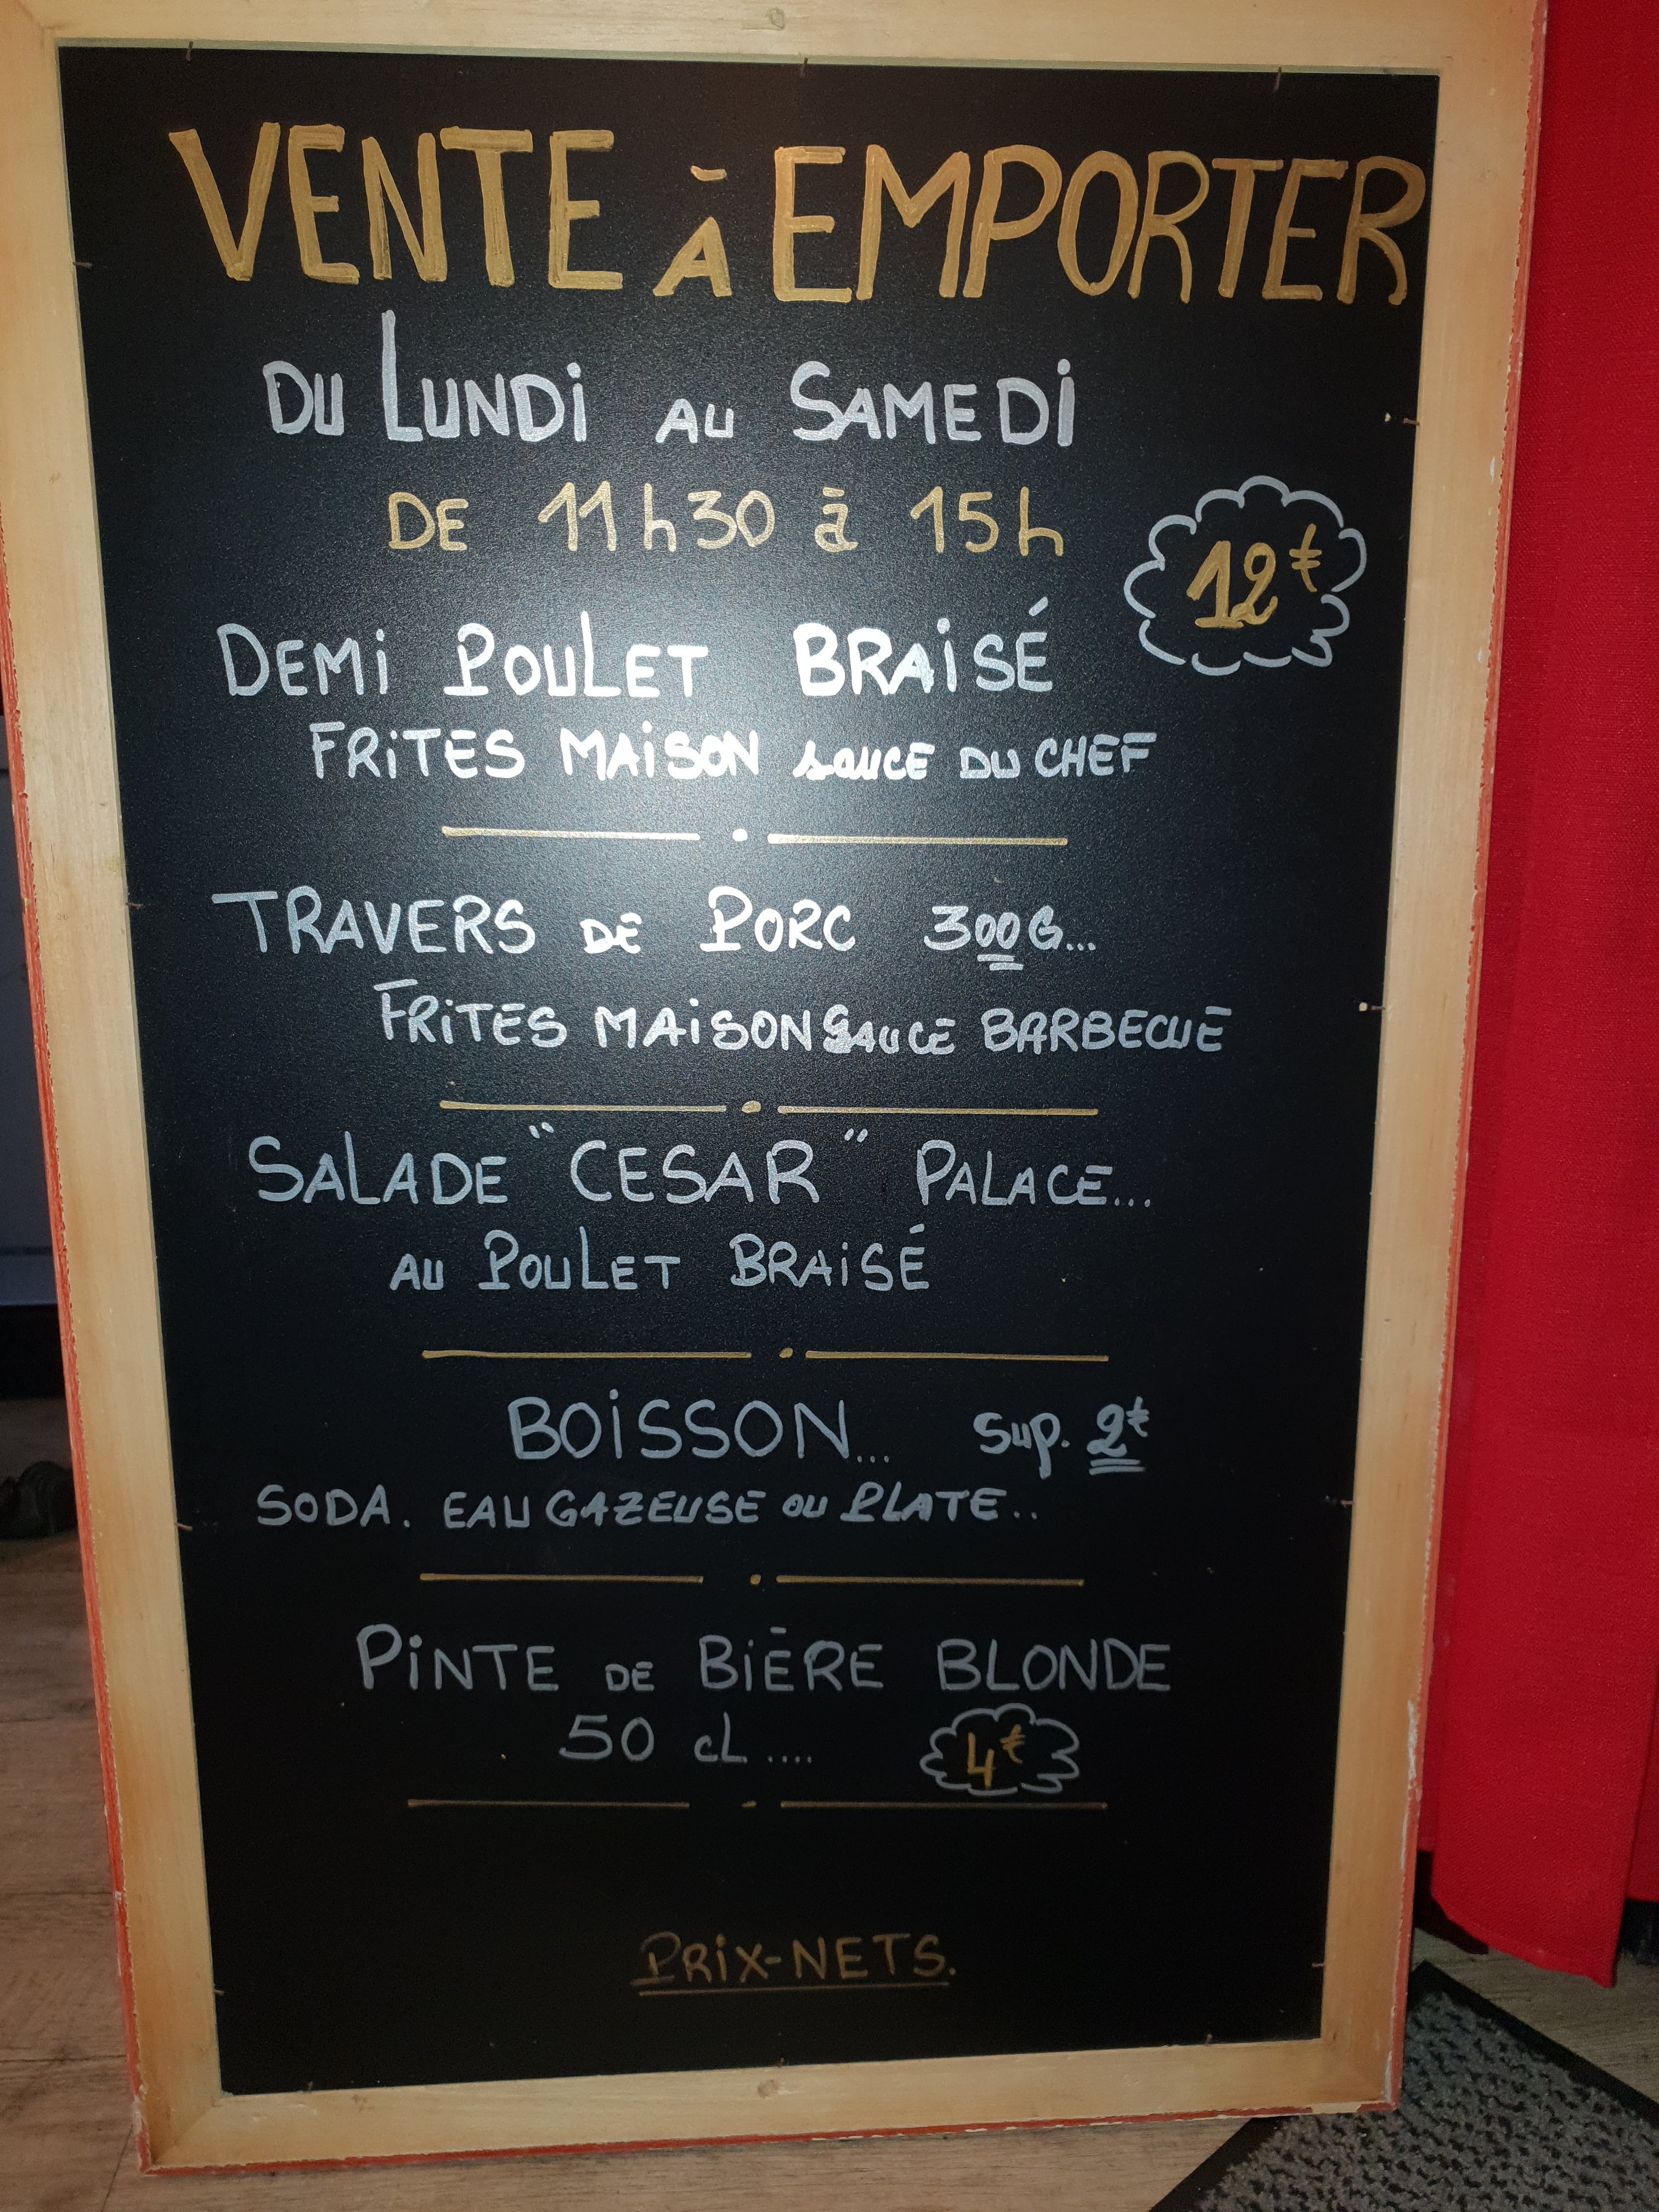 VENTE À EMPORTER
DU LUNDI AU SAMEDI
DE 11h30 à 15h
12€
DEMI POULET BRAISÉ
FRITES MAISON sauce DU CHEF
TRAVERS DE PORC 300G...
FRITES MAISON SAUCE BARBECUE
SALADE "CESAR" PALACE...
AU POULET BRAISÉ
BOISSON... Sup. 2€
SODA. EAU GAZEUSE OU PLATE..
PINTE DE BIÈRE BLONDE
50 cL .... 4€
PRIX-NETS.